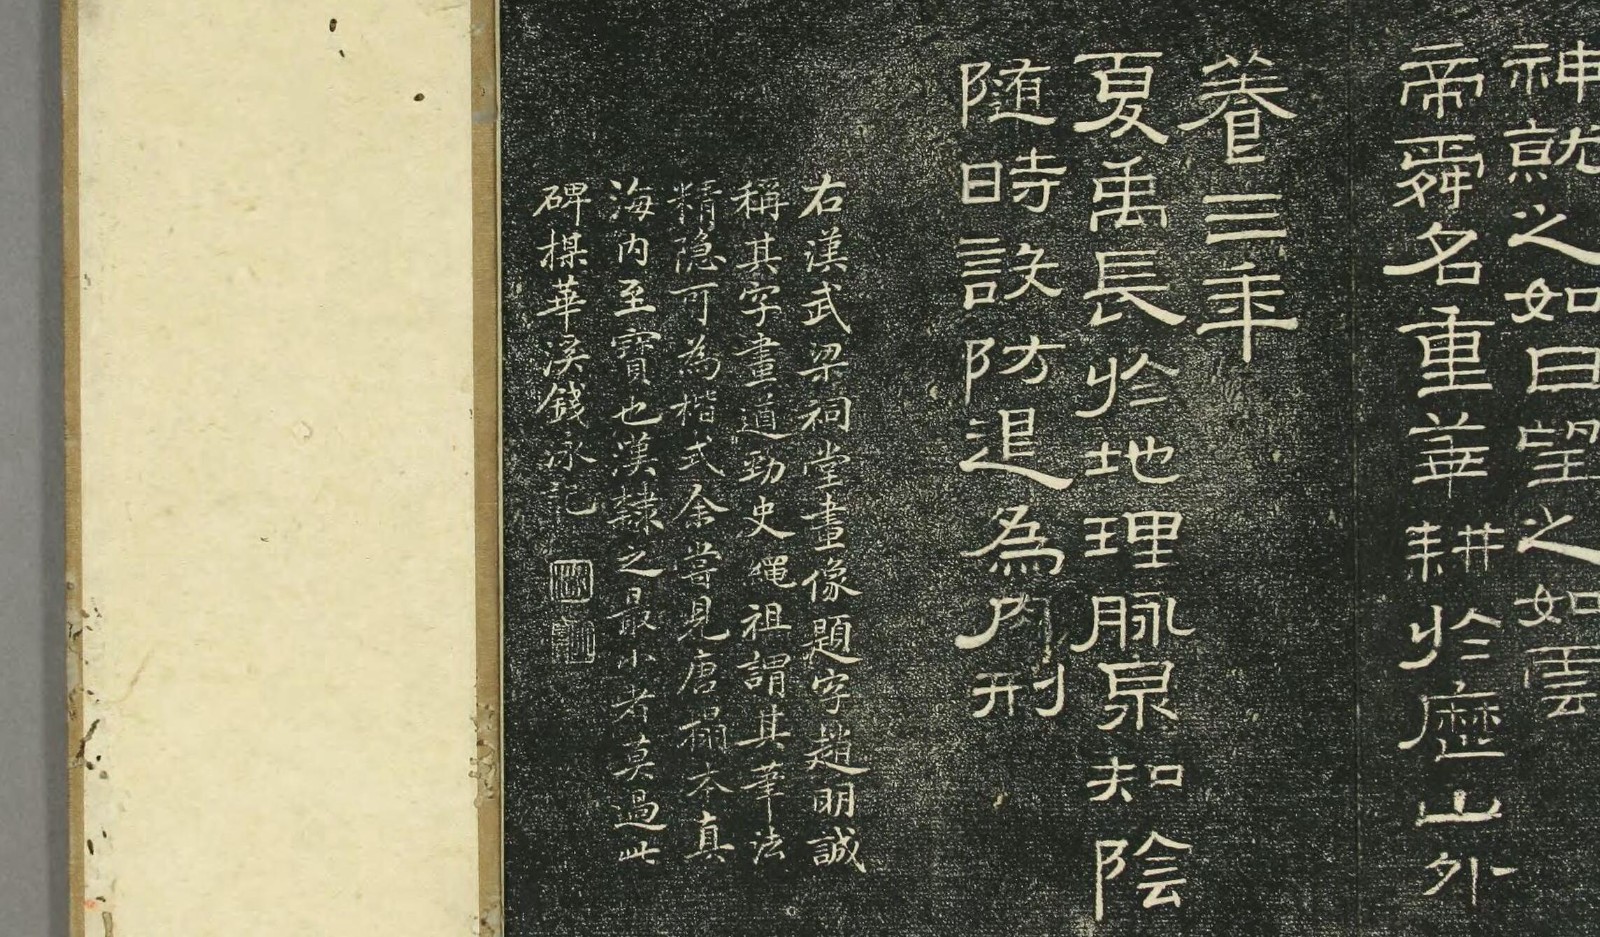 神就之如日望之如雲
帝舜名重華耕於歷山外
養三年
夏禹長於地理脉泉知陰
随時設防退為肉刑
右漢武梁祠堂畫像題字趙明誠
稱其字畫遒勁史繩祖謂其筆法
精隐可為楷式余嘗見唐搨本真
海內至寶也漢隸之最小者莫過此
碑楳華溪錢泳記